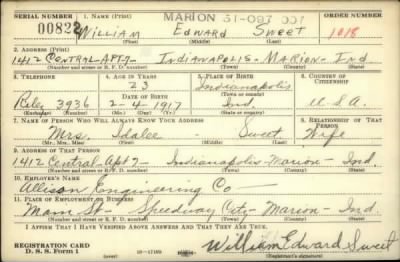 SERIAL NUMBER 1. NAME (Print) MARION 31-097 001 ORDER NUMBER
00822 William Edward Sweet 1018
(First) (Middle) (Last)
2. ADDRESS (Print)
1412 CENTRAL-APT 7- INDIANAPOLIS- MARION- IND
(Number and street or R. F. D. number) (Town) (County) (State)
3. TELEPHONE 4. AGE IN YEARS 5. PLACE OF BIRTH 6. COUNTRY OF CITIZENSHIP
23 Indianapolis
DATE OF BIRTH (Town or county)
Riley 3936 2-4-1917 Ind. U.S.A.
(Exchange) (Number) (Mo.) (Day) (Yr.) (State or country)
7. NAME OF PERSON WHO WILL ALWAYS KNOW YOUR ADDRESS 8. RELATIONSHIP OF THAT PERSON
Mrs. Idalee - Sweet Wife
(Mr., Mrs., Miss) (First) (Middle) (Last)
9. ADDRESS OF THAT PERSON
1412 Central-Apt 7- Indianapolis-Marion- Ind.
(Number and street or R. F. D. number) (Town) (County) (State)
10. EMPLOYER'S NAME
Allison Engineering Co
11. PLACE OF EMPLOYMENT OR BUSINESS
Main St- Speedway City- Marion- Ind.
(Number and street or R. F. D. number) (Town) (County) (State)
I AFFIRM THAT I HAVE VERIFIED ABOVE ANSWERS AND THAT THEY ARE TRUE.
REGISTRATION CARD
D. S. S. Form 1 (over) William Edward Sweet
(Registrant's signature)